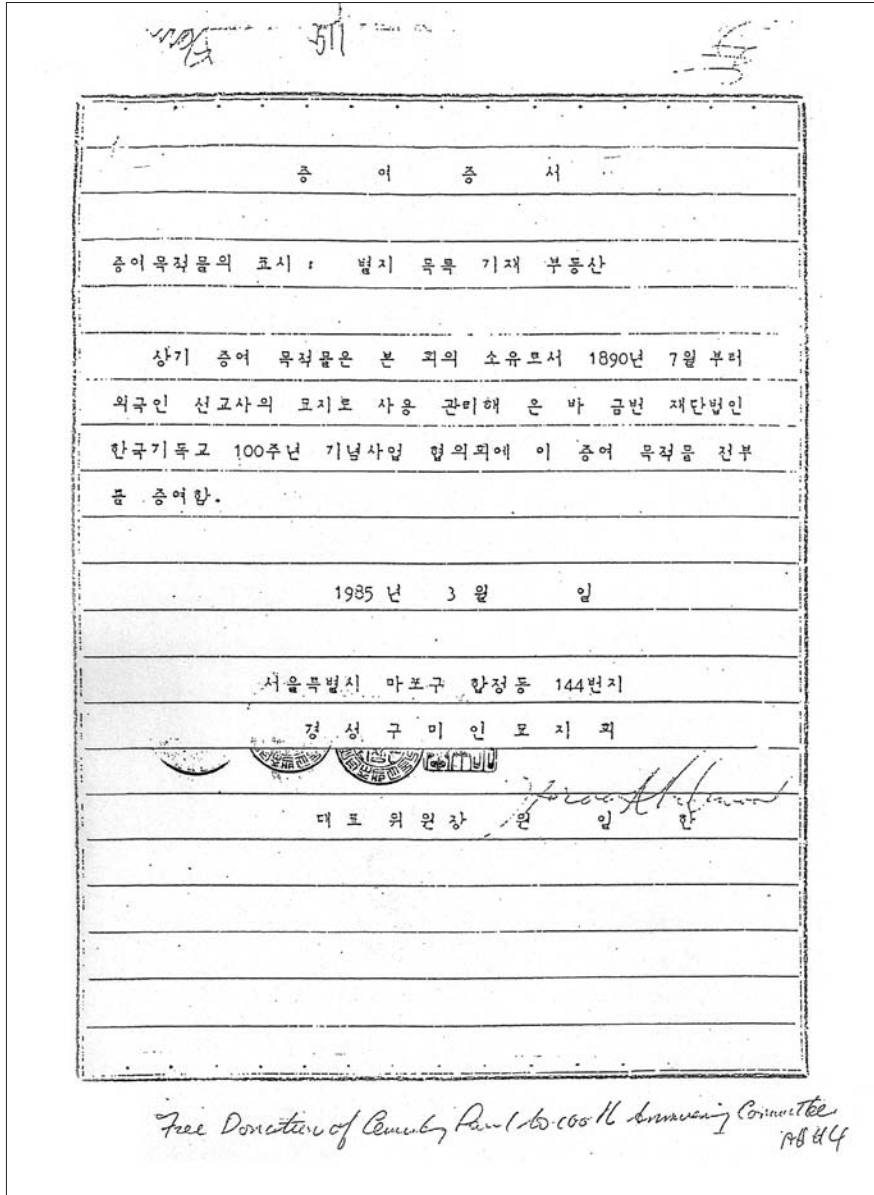 증 여 증 서
증여목적물의 표시 : 별지 목록 기재 부동산
상기 증여 목적물은 본 회의 소유로서 1890년 7월 부터
외국인 선교사의 묘지로 사용 관리해 온 바 금번 재단법인
한국기독교 100주년 기념사업 협의회에 이 증여 목적물 전부
를 증여함.
1985 년 3 월 일
서울특별시 마포구 합정동 144번지
경 성 구 미 인 묘 지 회
대 표 위 원 장 원 일 한
Free Donation of Cemetery to 100th Committee